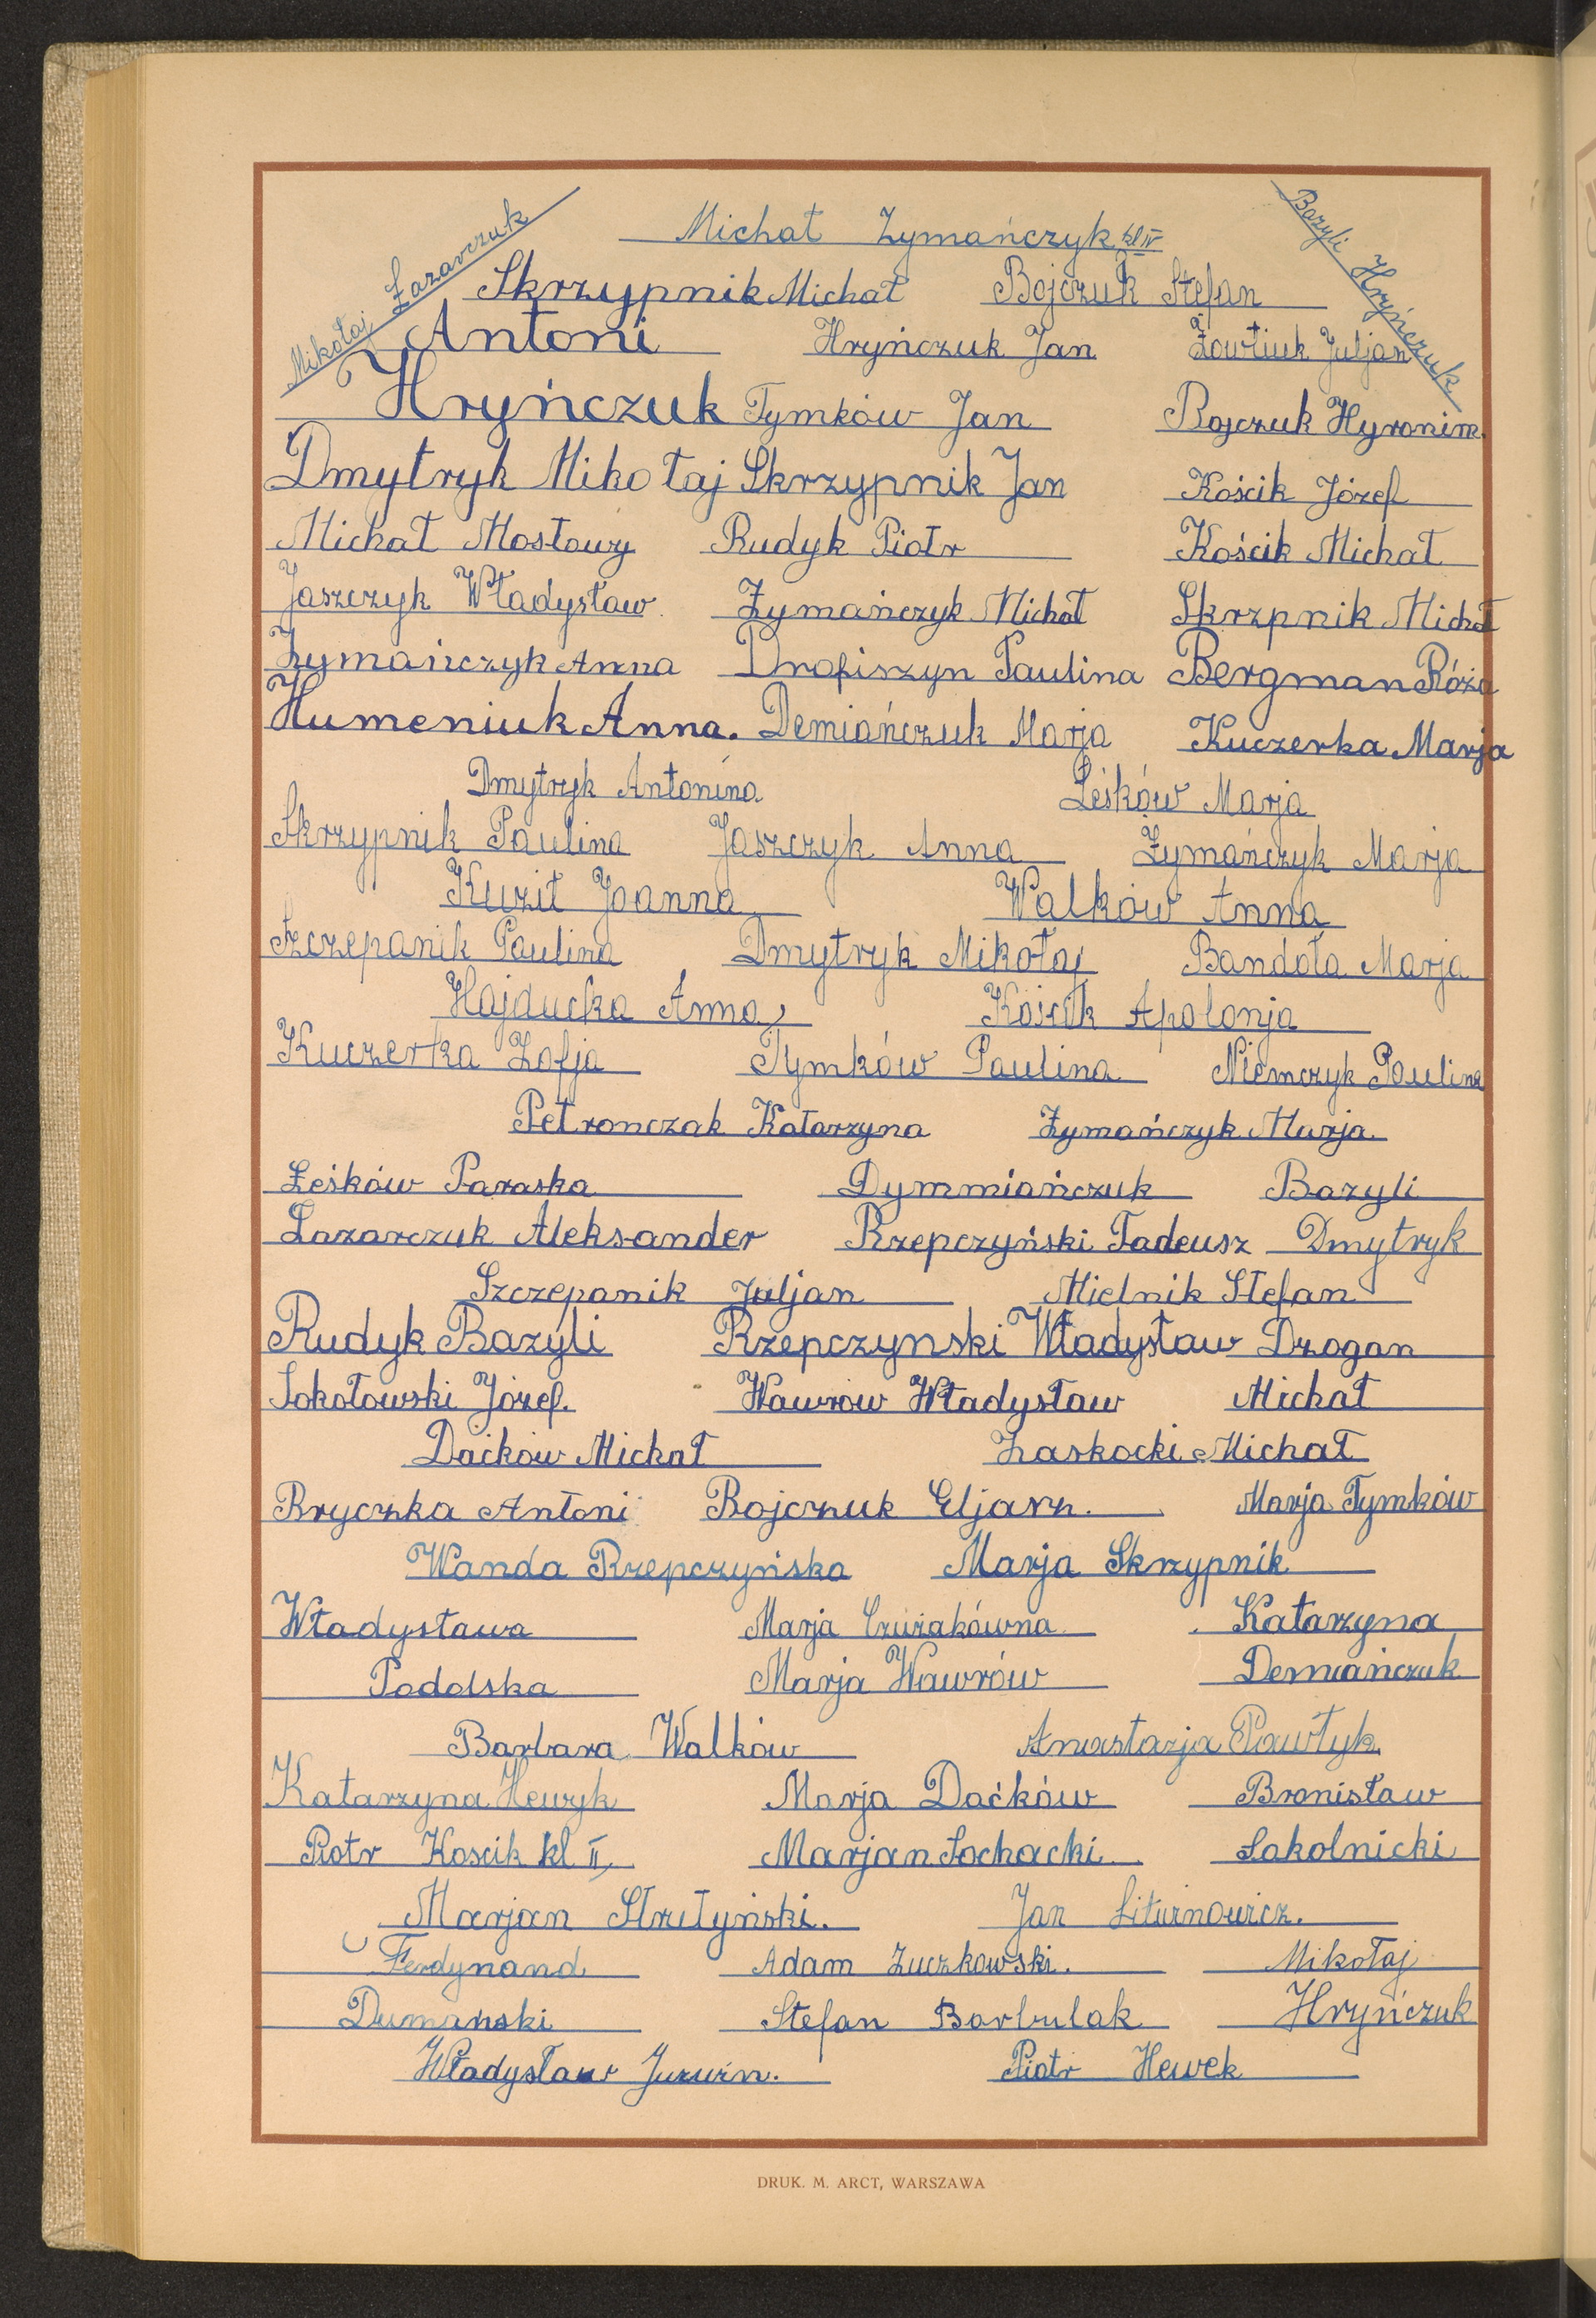 Mikołaj Łazarczuk
Michał Zymańczyk kl IV
Bazyli Hryńczuk
Skrzypnik Michał Bojczuk Stefan
Antoni Hryńczuk Jan Juljan
Hryńczuk Tymków Jan Bojczuk Hyronim.
Dmytryk Mikołaj Skrzypnik Jan Kościk Józef
Michał Mostowy Rudyk Piotr Kościk Michał
Jaszczyk Władysław Zymańczyk Michał Skrzpnik Michał
Zymańczyk Anna Drofiszyn Paulina Bergman Róża
Humeniuk Anna. Demiańczuk Marja Kuczerka Marja
Dmytryk Antonina Leśków Marja
Skrzypnik Paulina Jaszczyk Anna Zymańczyk Marja
Joanna Walków Anna
Szczepanik Paulina Dmytryk Mikołaj Bandoła Marja
Hajducka Anna Kościk Apolonja
Kuczerka Zofja Tymków Paulina Niemczyk Paulina
Petronczak Katarzyna Zymańczyk Marja.
Leśków Paraska Dymmiańczuk Bazyli
Łazarczuk Aleksander Rzepczyński Tadeusz Dmytryk
Szczepanik Juljan Mielnik Stefan
Rudyk Bazyli Rzepczynski Władysław Drogan
Sokołowski Józef. Wawrow Władysław Michał
Daćków Michał Zaskocki Michał
Bryczka Antoni Bojczuk Eljasz. Marja Tymków
Wanda Rzepczyńska Marja Skrzypnik
Władysława Marja Katarzyna
Podolska Marja Wawrów Demiańczuk
Barbara Walków Anastazja Pawłyk.
Katarzyna Hewyk Marja Daćków Bronisław
Piotr Koscik kl II Marjan Sochacki Sokolnicki
Marjan Strutyński. Jan
Ferdynand Adam Zuczkowski. Mikołaj
Dumański Stefan Barbulak Hryńczuk
Władysław Piotr Hewek
DRUK. M. ARCT, WARSZAWA